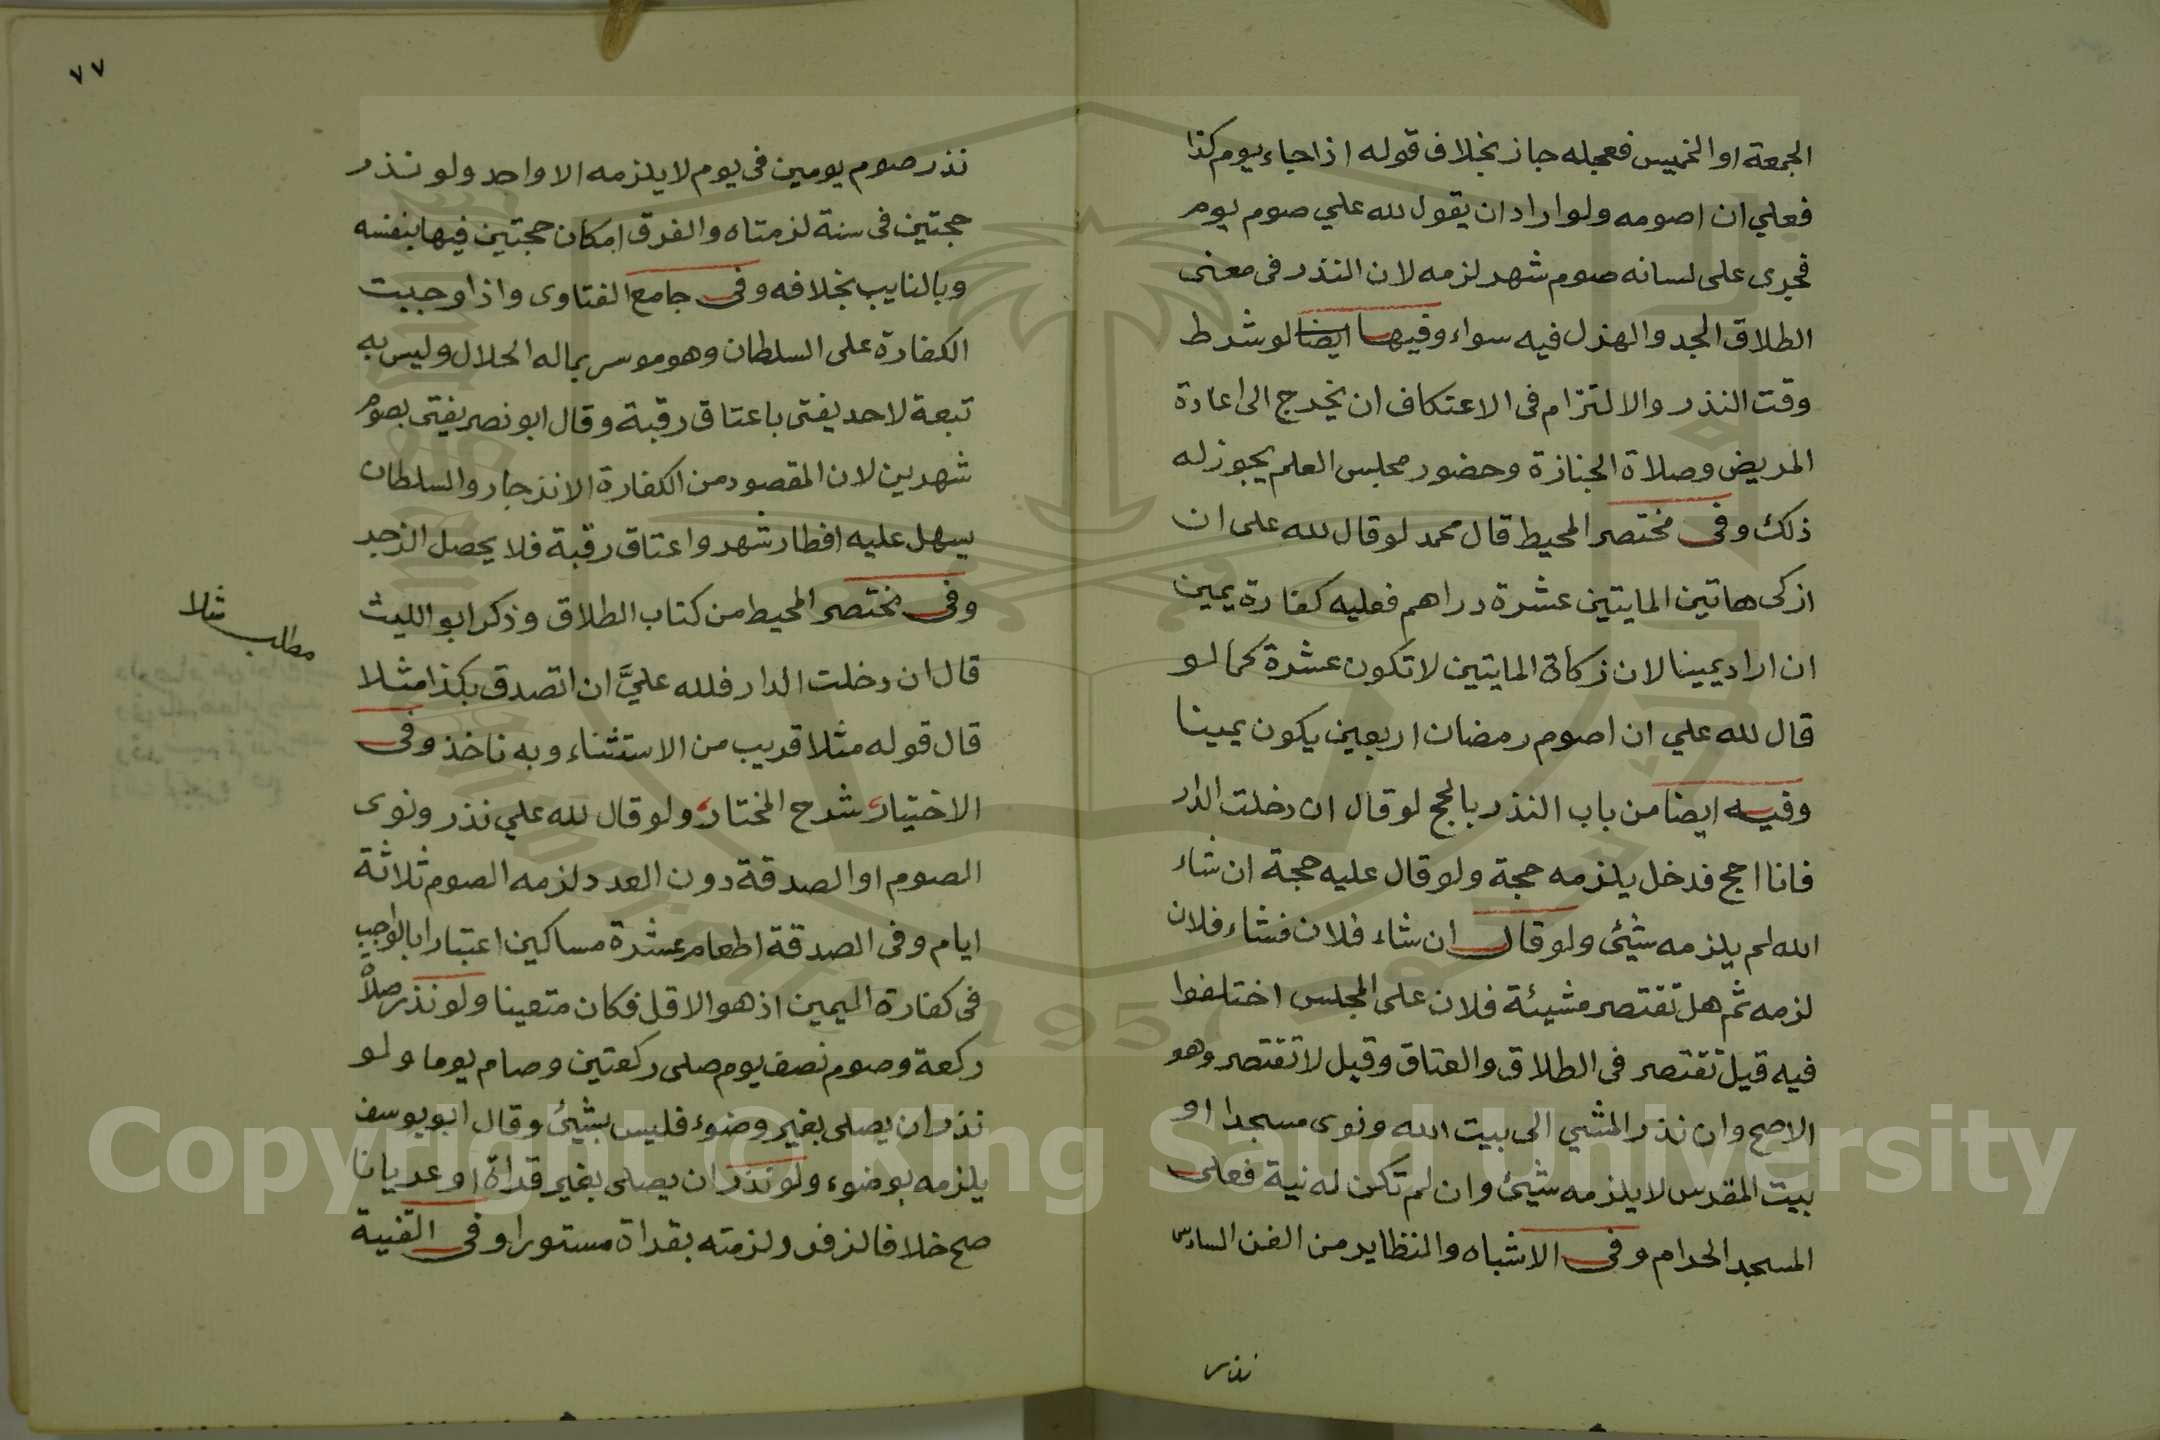 الجمعة او الخميس فعجله جاز بخلاف قوله اذا جاء يوم كذا
فعلي ان اصومه ولو اراد ان يقول لله علي صوم يوم
فجرى على لسانه صوم شهر لزمه لان النذر في معنى
الطلاق الجد والهزل فيه سواء وفيها ايضا لو شرط
وقت النذر والالتزام في الاعتكاف ان يخرج الى اعادة
المريض وصلاة الجنازة وحضور مجلس العلم يجوز له
ذلك وفى مختصر المحيط قال محمد لو قال لله على ان
ازكى هاتين المايتين عشرة دراهم فعليه كفارة يمين
ان اراد يمينا لان زكاة المايتين لا تكون عشرة كما لو
قال لله علي ان اصوم رمضان اربعين يكون يمينا
وفيه ايضا من باب النذر بالحج لو قال ان دخلت الدار
فانا احج فدخل يلزمه حجة ولو قال عليه حجة ان شاء
الله لم يلزمه شيئ ولو قال ان شاء فلان فشاء فلان
لزمه ثم هل تقتصر مشيئة فلان على المجلس اختلفوا
فيه قيل تقتصر في الطلاق والعتاق وقيل لا تقتصر وهو
الاصح وان نذر المشي الى بيت الله ونوى مسجدا او
بيت المقدس لا يلزمه شيئ وان لم تكن له نية فعلى
المسجد الحرام وفى الاشباه والنظاير من الفن السادس
نذر
٧٧
نذر صوم يومين في يوم لا يلزمه الا واحد ولو نذر
حجتين في سنة لزمتاه والفرق امكان حجتين فيها بنفسه
وبالنايب بخلافه وفى جامع الفتاوى واذا وجبت
الكفارة على السلطان وهو موسر بماله الحلال وليس به
تبعة لاحد يفتى باعتاق رقبة وقال ابو نصر يفتى بصوم
شهرين لان المقصود من الكفارة الانزجار والسلطان
يسهل عليه افطار شهر واعتاق رقبة فلا يحصل الزجر
وفى مختصر المحيط من كتاب الطلاق وذكر ابو الليث
قال ان دخلت الدار فلله عليَّ ان اتصدق بكذا مثلا
قال قوله مثلا قريب من الاستثناء وبه ناخذ وفى
الاختيار شرح المختار ولو قال لله علي نذر ونوى
الصوم او الصدقة دون العدد لزمه الصوم ثلاثة
ايام وفى الصدقة اطعام عشرة مساكين اعتبارا بالواجب
في كفارة اليمين اذ هو الاقل فكان متعينا ولو نذر صلاة
ركعة وصوم نصف يوم صلى ركعتين وصام يوما ولو
نذر ان يصلى بغير وضوء فليس بشيئ وقال ابو يوسف
يلزمه بوضوء ولو نذر ان يصلى بغير قراة او عريانا
صح خلافا لزفر ولزمته بقراة مستورا وفى القنية
مطلب
Copyright © King Saud University
1957